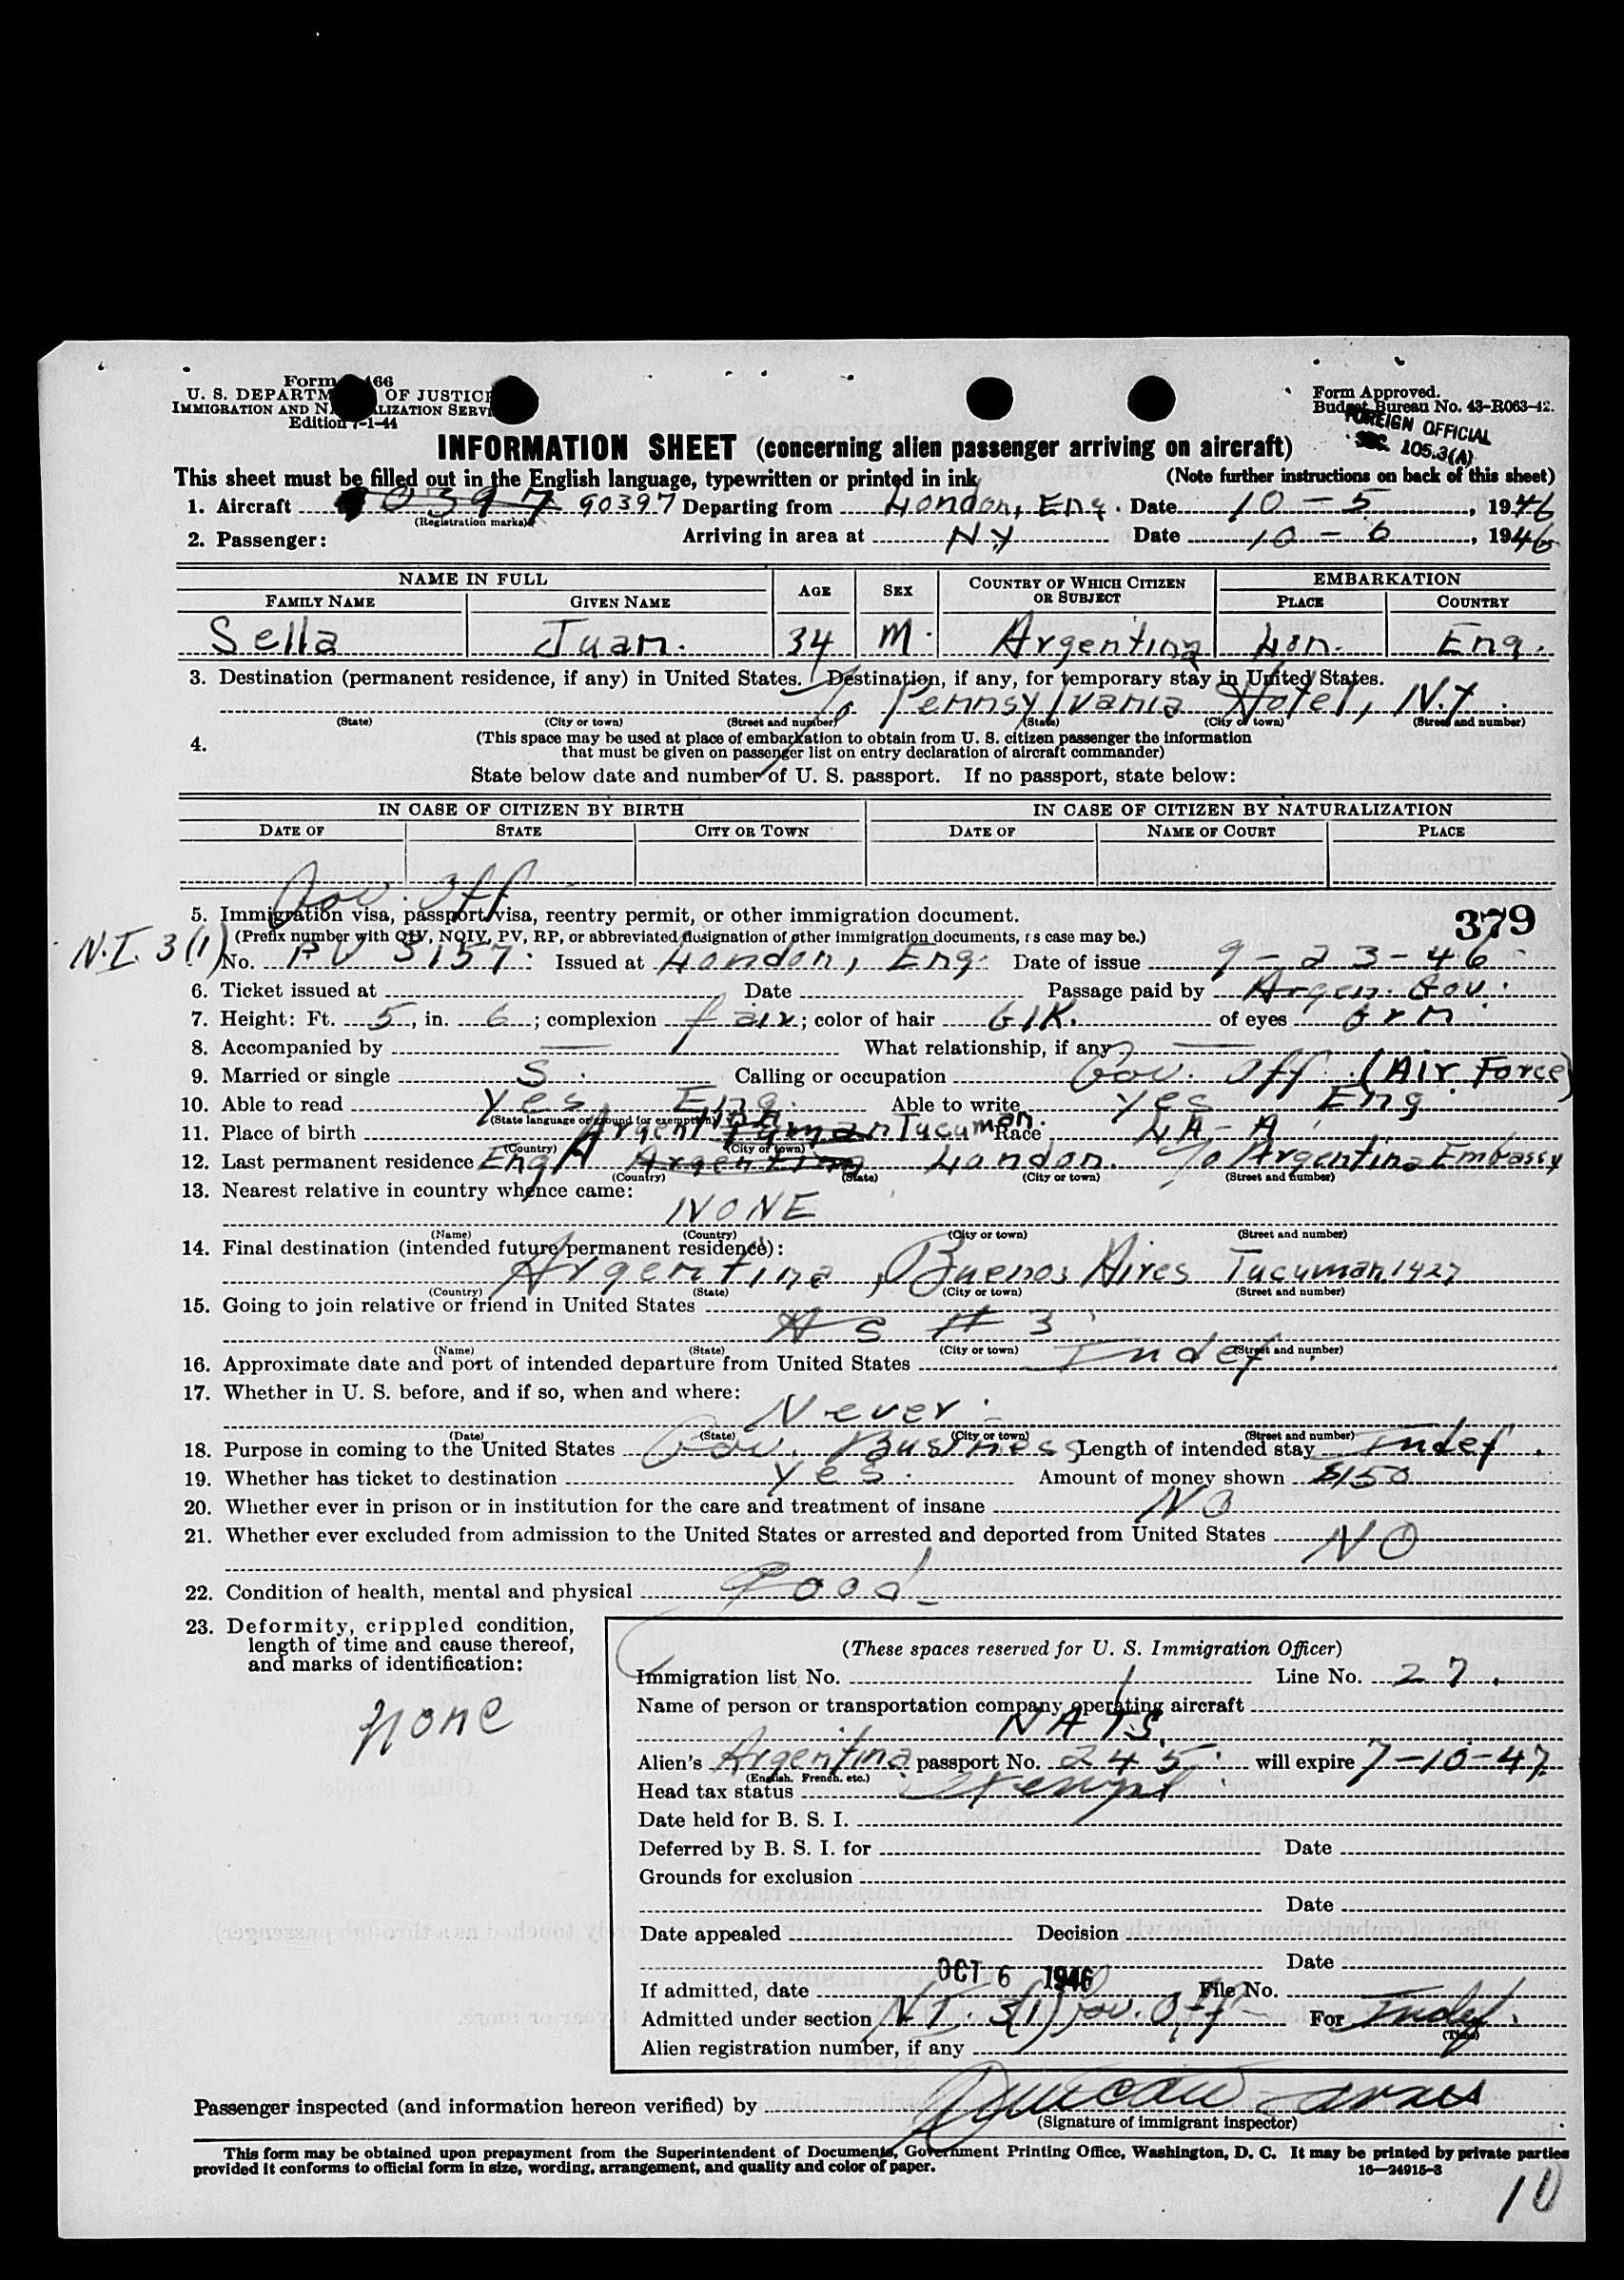 Form 466
U. S. DEPARTM OF JUSTICE
IMMIGRATION AND N ALIZATION SERVI
Edition 7-1-44
Form Approved.
Budget Bureau No. 43-R063-42.
FOREIGN OFFICIAL
SEC. 105.3(A)
INFORMATION SHEET (concerning alien passenger arriving on aircraft)
This sheet must be filled out in the English language, typewritten or printed in ink (Note further instructions on back of this sheet)
1. Aircraft 90397 90397 Departing from London, Eng. Date 10-5, 1946
(Registration marks)
2. Passenger: Arriving in area at N.Y. Date 10-6, 1946
NAME IN FULL AGE SEX COUNTRY OF WHICH CITIZEN OR SUBJECT EMBARKATION
FAMILY NAME GIVEN NAME PLACE COUNTRY
Sella Juan. 34 M. Argentina Lon. Eng.
3. Destination (permanent residence, if any) in United States. Destination, if any, for temporary stay in United States.
Pennsylvania Hotel, N.Y.
(State) (City or town) (Street and number) (State) (City or town) (Street and number)
4. (This space may be used at place of embarkation to obtain from U. S. citizen passenger the information
that must be given on passenger list on entry declaration of aircraft commander)
State below date and number of U. S. passport. If no passport, state below:
IN CASE OF CITIZEN BY BIRTH IN CASE OF CITIZEN BY NATURALIZATION
DATE OF STATE CITY OR TOWN DATE OF NAME OF COURT PLACE
Gov. Off
5. Immigration visa, passport visa, reentry permit, or other immigration document.
379
(Prefix number with QIV, NQIV, PV, RP, or abbreviated designation of other immigration documents, as case may be.)
N.I. 3(1) No. PV 3157. Issued at London, Eng. Date of issue 9-23-46
6. Ticket issued at Date Passage paid by Argen. Gov.
7. Height: Ft. 5, in. 6; complexion fair; color of hair blk. of eyes Grn
8. Accompanied by — What relationship, if any —
9. Married or single S. Calling or occupation Gov. Off. (Air Force)
10. Able to read Yes Eng. Able to write yes Eng
(State language or ground for exemption)
11. Place of birth Argentina Tucuman. Race LA-A
(Country) (City or town)
12. Last permanent residence Eng Argentina London. c/o Argentina Embassy
(Country) (State) (City or town) (Street and number)
13. Nearest relative in country whence came:
NONE
(Name) (Country) (City or town) (Street and number)
14. Final destination (intended future permanent residence):
Argentina, Buenos Aires Tucuman 1427
(Country) (State) (City or town) (Street and number)
15. Going to join relative or friend in United States
AS # 3
(Name) (State) (City or town) (Street and number)
16. Approximate date and port of intended departure from United States Indef.
17. Whether in U. S. before, and if so, when and where:
Never.
(Date) (State) (City or town) (Street and number)
18. Purpose in coming to the United States Gov. Business Length of intended stay Indef.
19. Whether has ticket to destination Yes. Amount of money shown $150
20. Whether ever in prison or in institution for the care and treatment of insane NO
21. Whether ever excluded from admission to the United States or arrested and deported from United States NO
22. Condition of health, mental and physical Good
23. Deformity, crippled condition,
length of time and cause thereof,
and marks of identification:
None
(These spaces reserved for U. S. Immigration Officer)
Immigration list No. 1 Line No. 27.
Name of person or transportation company operating aircraft
NATS.
Alien's Argentina passport No. 245. will expire 7-10-47.
(English, French, etc.)
Head tax status Exempt
Date held for B. S. I.
Deferred by B. S. I. for Date
Grounds for exclusion
Date
Date appealed Decision
Date
If admitted, date OCT 6 1946 File No.
Admitted under section N.I. 3(1) Gov. Off For Indef.
(Time)
Alien registration number, if any
Passenger inspected (and information hereon verified) by
(Signature of immigrant inspector)
This form may be obtained upon prepayment from the Superintendent of Documents, Government Printing Office, Washington, D. C. It may be printed by private parties
provided it conforms to official form in size, wording, arrangement, and quality and color of paper. 16—24915-3
10